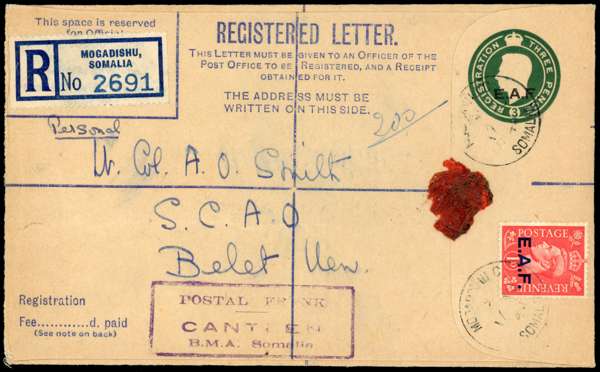 This space is reserved
for Official
R MOGADISHU,
SOMALIA
No 2691
REGISTERED LETTER.
THIS LETTER MUST BE GIVEN TO AN OFFICER OF THE
POST OFFICE TO BE REGISTERED, AND A RECEIPT
OBTAINED FOR IT.
THE ADDRESS MUST BE
WRITTEN ON THIS SIDE.
REGISTRATION THREE PENCE
E.A.F.
3
SOMALIA
Personal
200
Lt. Col. A. O. Smith
S. C. A. O
Belet Uen.
POSTAGE
REVENUE
E.A.F.
SOMALIA
Registration
Fee............d. paid
(See note on back)
POSTAL FRANK
CANTEEN
B.M.A. Somalia